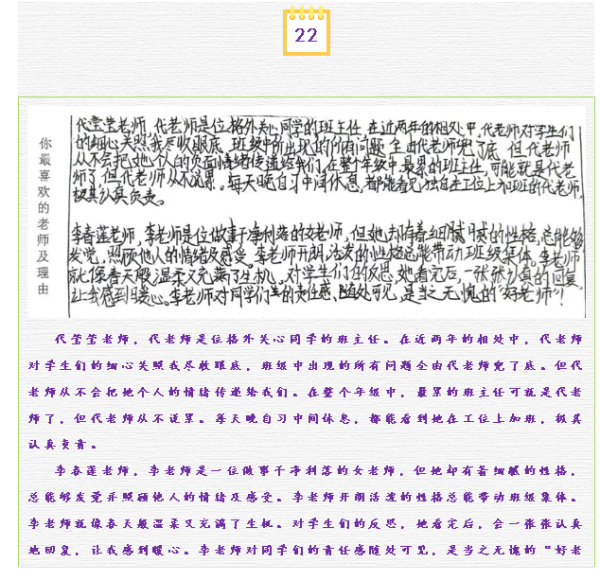 22
你最喜欢的老师及理由
代莹莹老师,代老师是位格外关心同学的班主任,在近两年的相处中,代老师对学生们
的细心关照我尽收眼底,班级中所出现的所有问题全由代老师兜了底。但代老师
从不会把她个人的负面情绪传递给我们,在整个年级中,最累的班主任,可能就是代老
师了,但代老师从不说累。每天晚自习中间休息,都能看见独自在工位上加班的代老师,
极其认真负责。
李春莲老师,李老师是位做事干净利落的女老师,但她却有着细腻的性格,总能够
发觉,照顾他人的情绪及感受。李老师开朗、活泼的性格总能带动班级集体,李老师
就像春天般温柔又充满了生机。对学生们的反思,她看完后,一张张认真的回复,
让我感到暖心。李老师对同学们的责任感,随处可见,是当之无愧的“好老师”!
代莹莹老师,代老师是位格外关心同学的班主任。在近两年的相处中,代老师
对学生们的细心关照我尽收眼底,班级中出现的所有问题全由代老师兜了底。但代
老师从不会把她个人的情绪传递给我们。在整个年级中,最累的班主任可就是代老
师了,但代老师从不说累。每天晚自习中间休息,都能看到她在工位上加班,极其
认真负责。
李春莲老师,李老师是一位做事干净利落的女老师,但她却有着细腻的性格,
总能够发觉并照顾他人的情绪及感受。李老师开朗活泼的性格总能带动班级集体。
李老师就像春天般温柔又充满了生机。对学生们的反思,她看完后,会一张张认真
地回复,让我感到暖心。李老师对同学们的责任感随处可见,是当之无愧的“好老